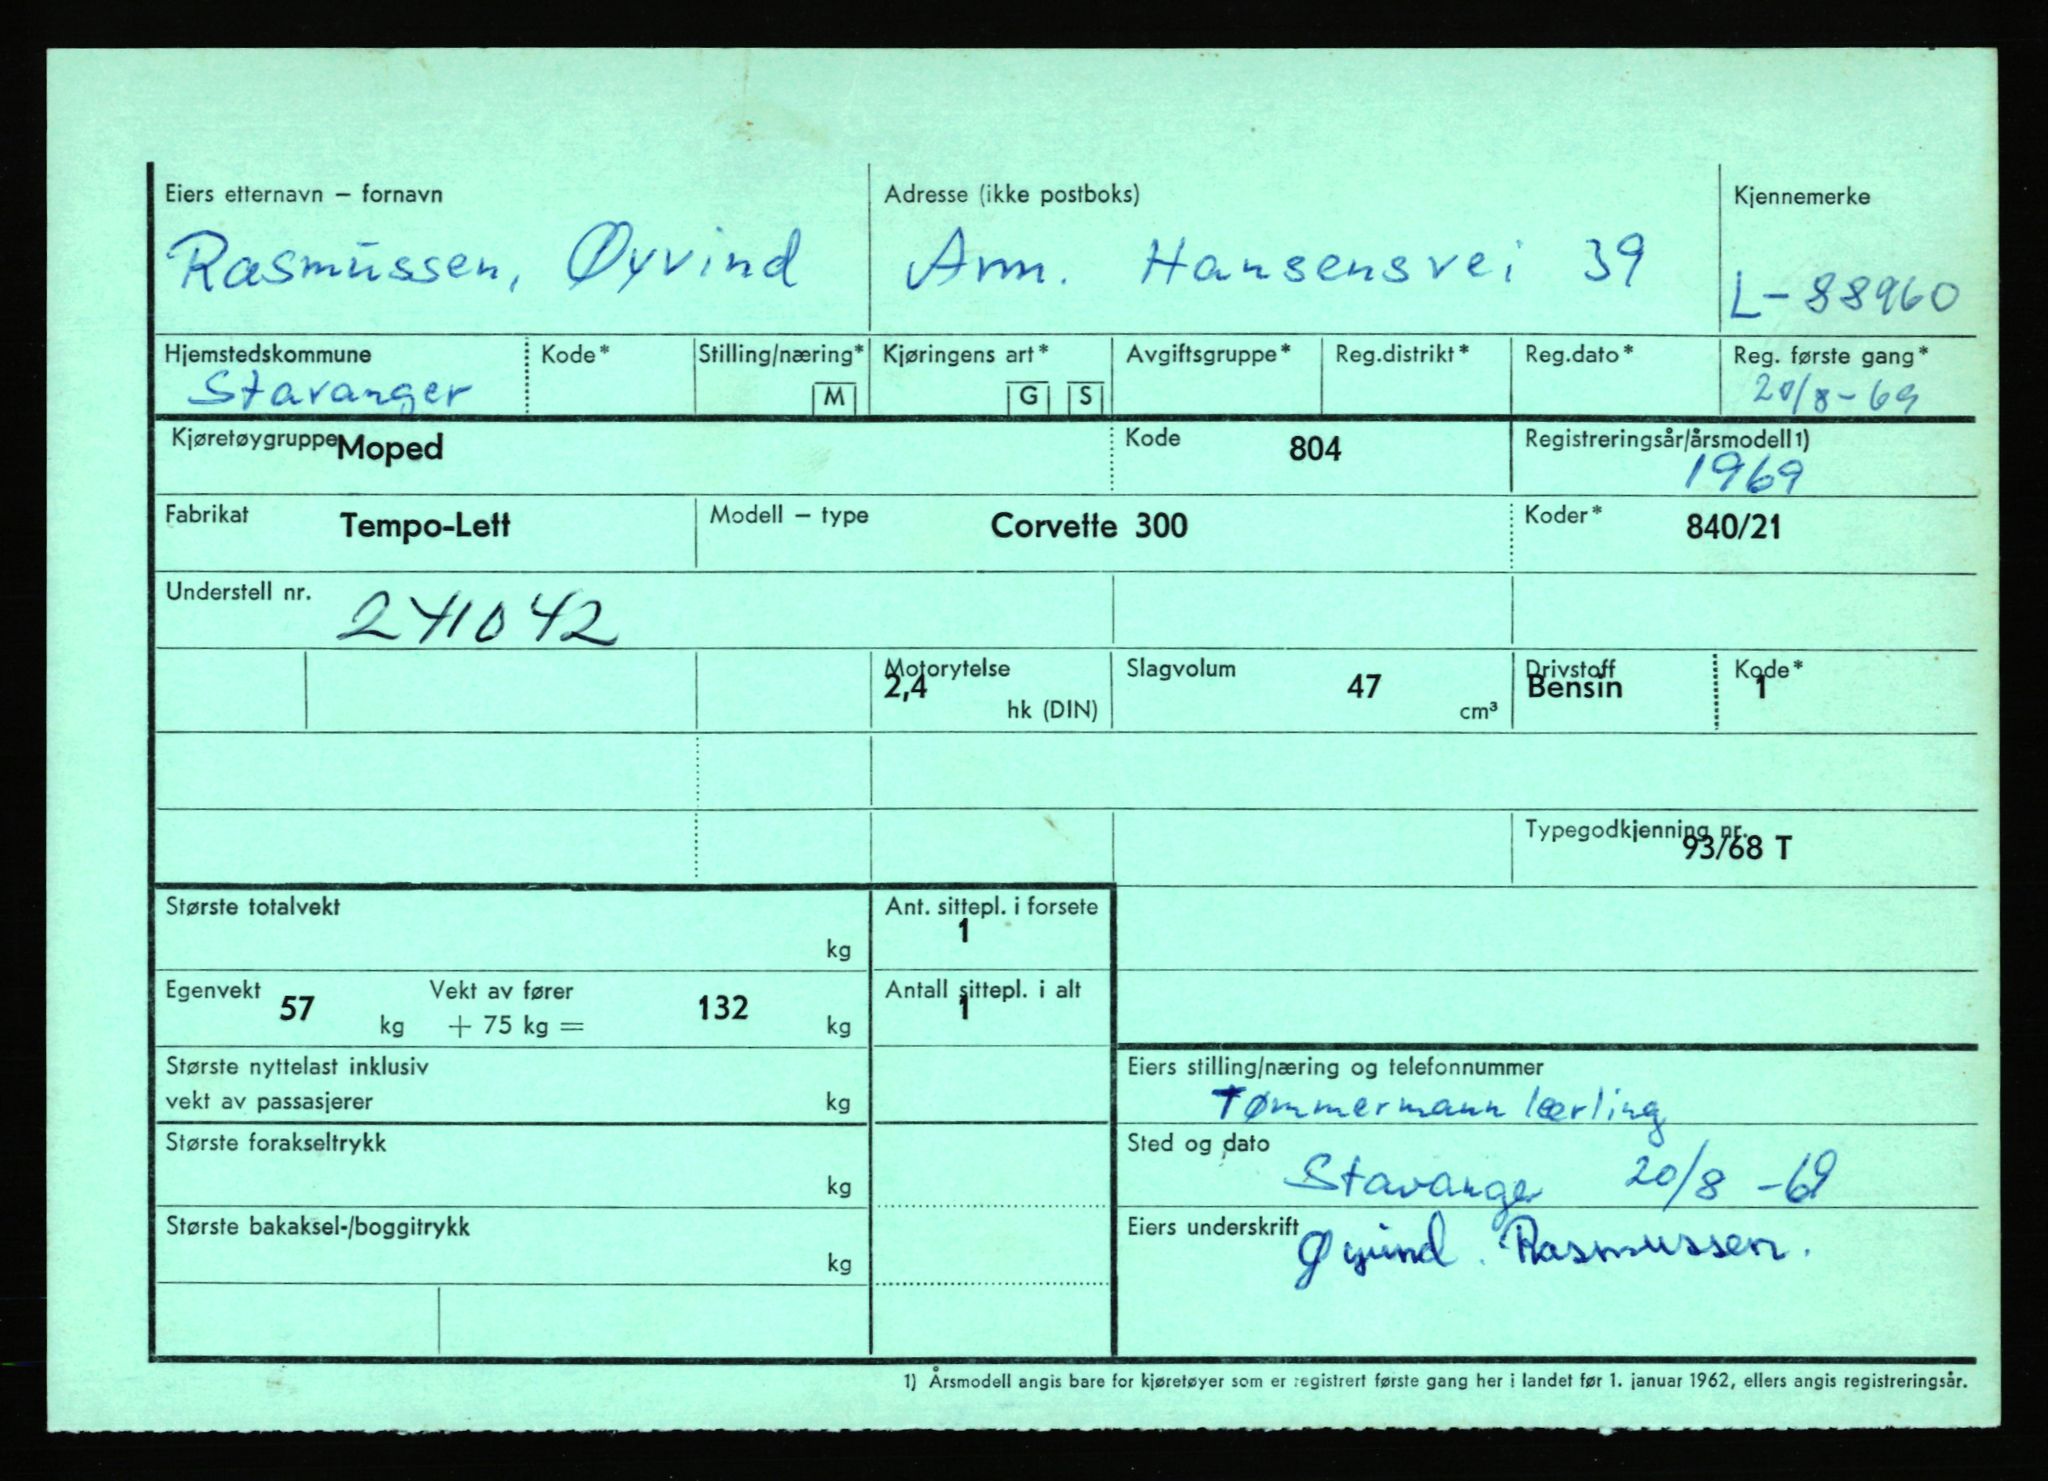 Eiers etternavn – fornavn
Rasmussen, Øyvind
Adresse (ikke postboks)
Arm. Hansensvei 39
Kjennemerke
L-88960
Hjemstedskommune
Stavanger
Kode*
Stilling/næring*
M
Kjøringens art*
G S
Avgiftsgruppe*
Reg.distrikt*
Reg.dato*
Reg. første gang*
20/8-69
Kjøretøygruppe Moped
Kode 804
Registreringsår/årsmodell1)
1969
Fabrikat Tempo-Lett
Modell – type Corvette 300
Koder* 840/21
Understell nr. 241042
Motorytelse
2,4
hk (DIN)
Slagvolum
47
cm³
Drivstoff
Bensin
Kode*
1
Typegodkjenning nr.
93/68 T
Største totalvekt
kg
Ant. sittepl. i forsete
1
Egenvekt 57 kg
Vekt av fører
+ 75 kg = 132 kg
Antall sittepl. i alt
1
Største nyttelast inklusiv
vekt av passasjerer kg
Eiers stilling/næring og telefonnummer
Tømmermann lærling
Største forakseltrykk
kg
Sted og dato
Stavanger 20/8-69
Største bakaksel-/boggitrykk
kg
Eiers underskrift
Øyvind. Rasmussen.
1) Årsmodell angis bare for kjøretøyer som er registrert første gang her i landet før 1. januar 1962, ellers angis registreringsår.